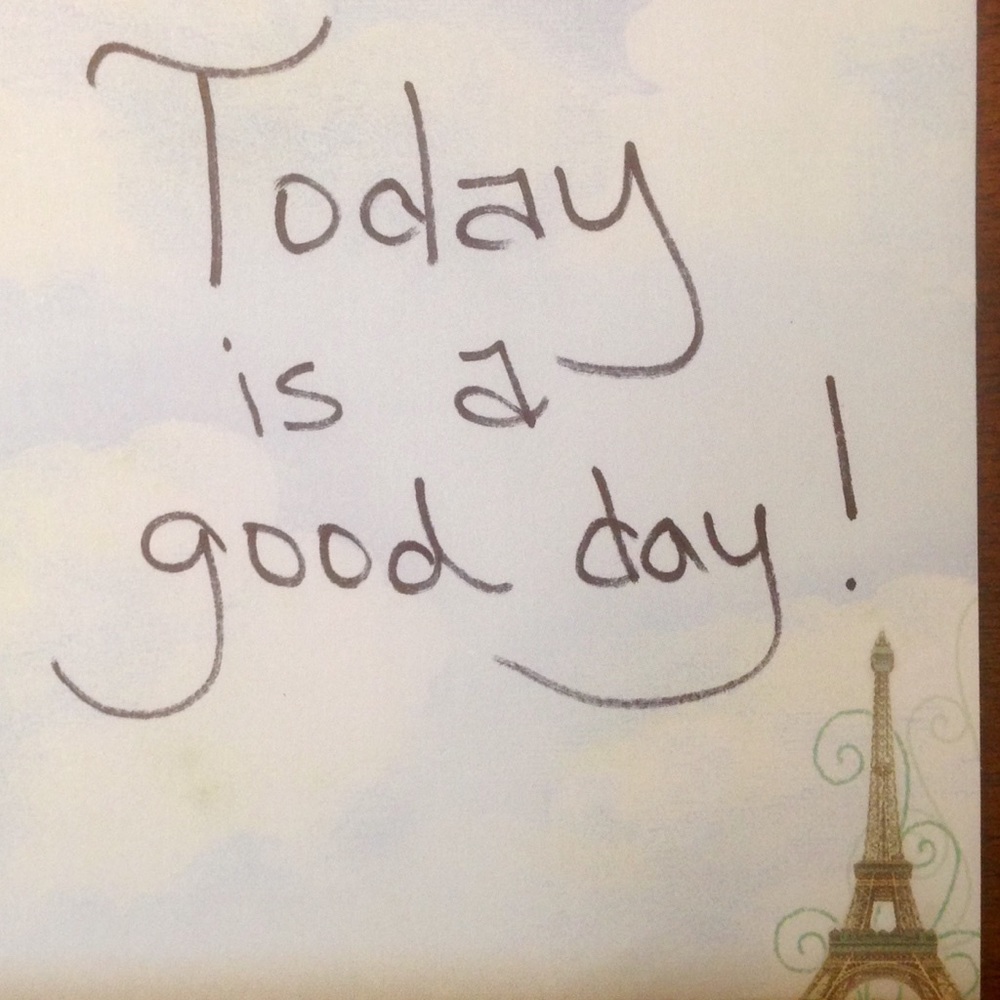 Today
is a
good day!